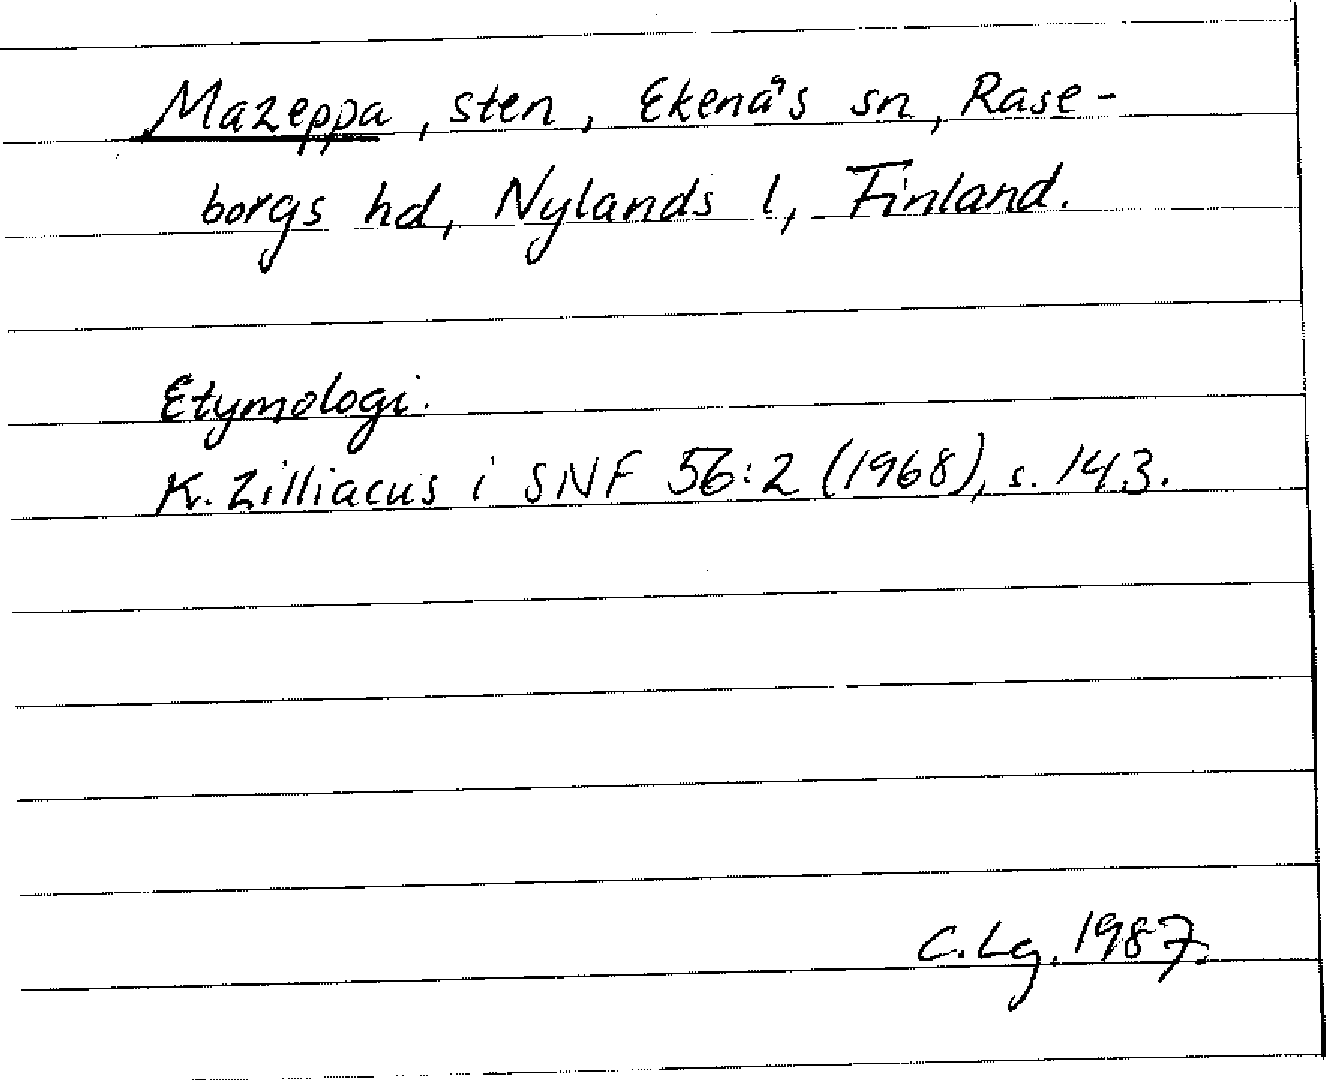 Mazeppa, sten, Ekenäs sn, Rase-
borgs hd, Nylands l, Finland.
Etymologi.
K. Zilliacus i SNF 56:2 (1968), s. 143.
C. Lg. 1987.